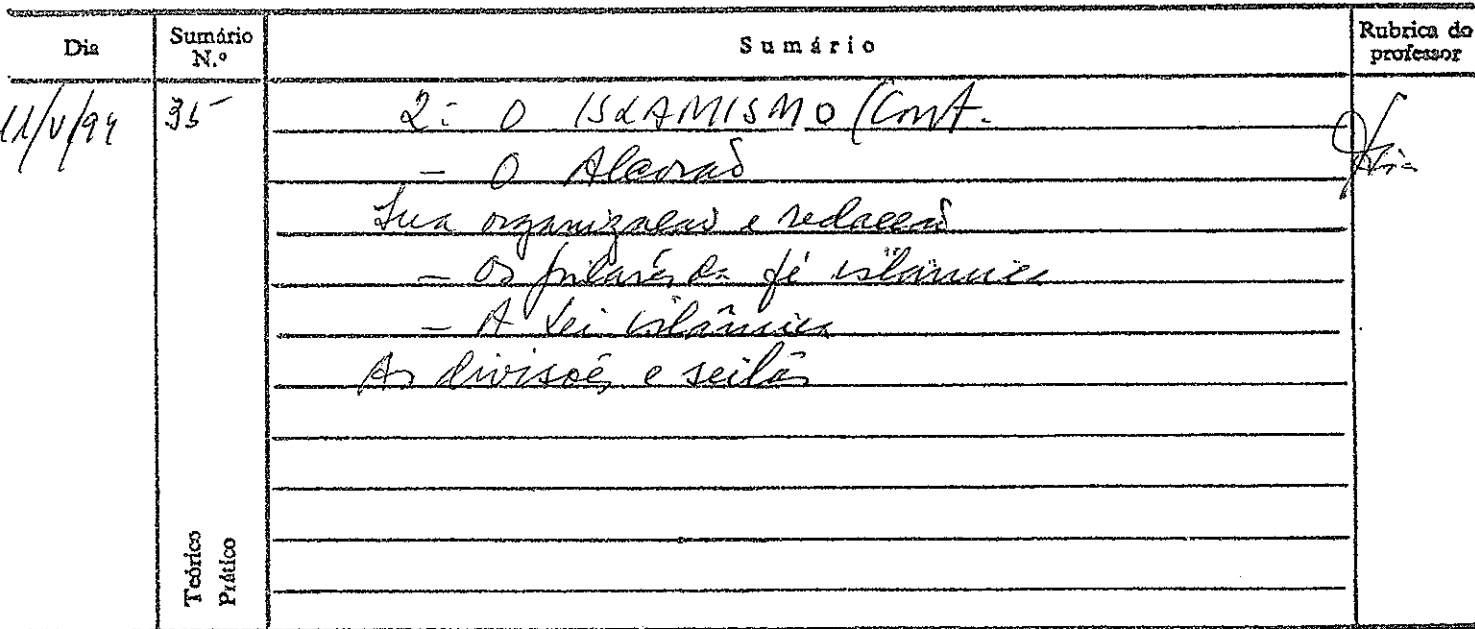 Dia
Sumário N.º
Sumário
Rubrica do professor
11/V/94
35
2. O ISLAMISMO (Cont.
- O Alcorão
Sua organização e redacção
- Os pilares da fé islâmica
- A Lei islâmica
As divisões e seitas
Teórico
Prático